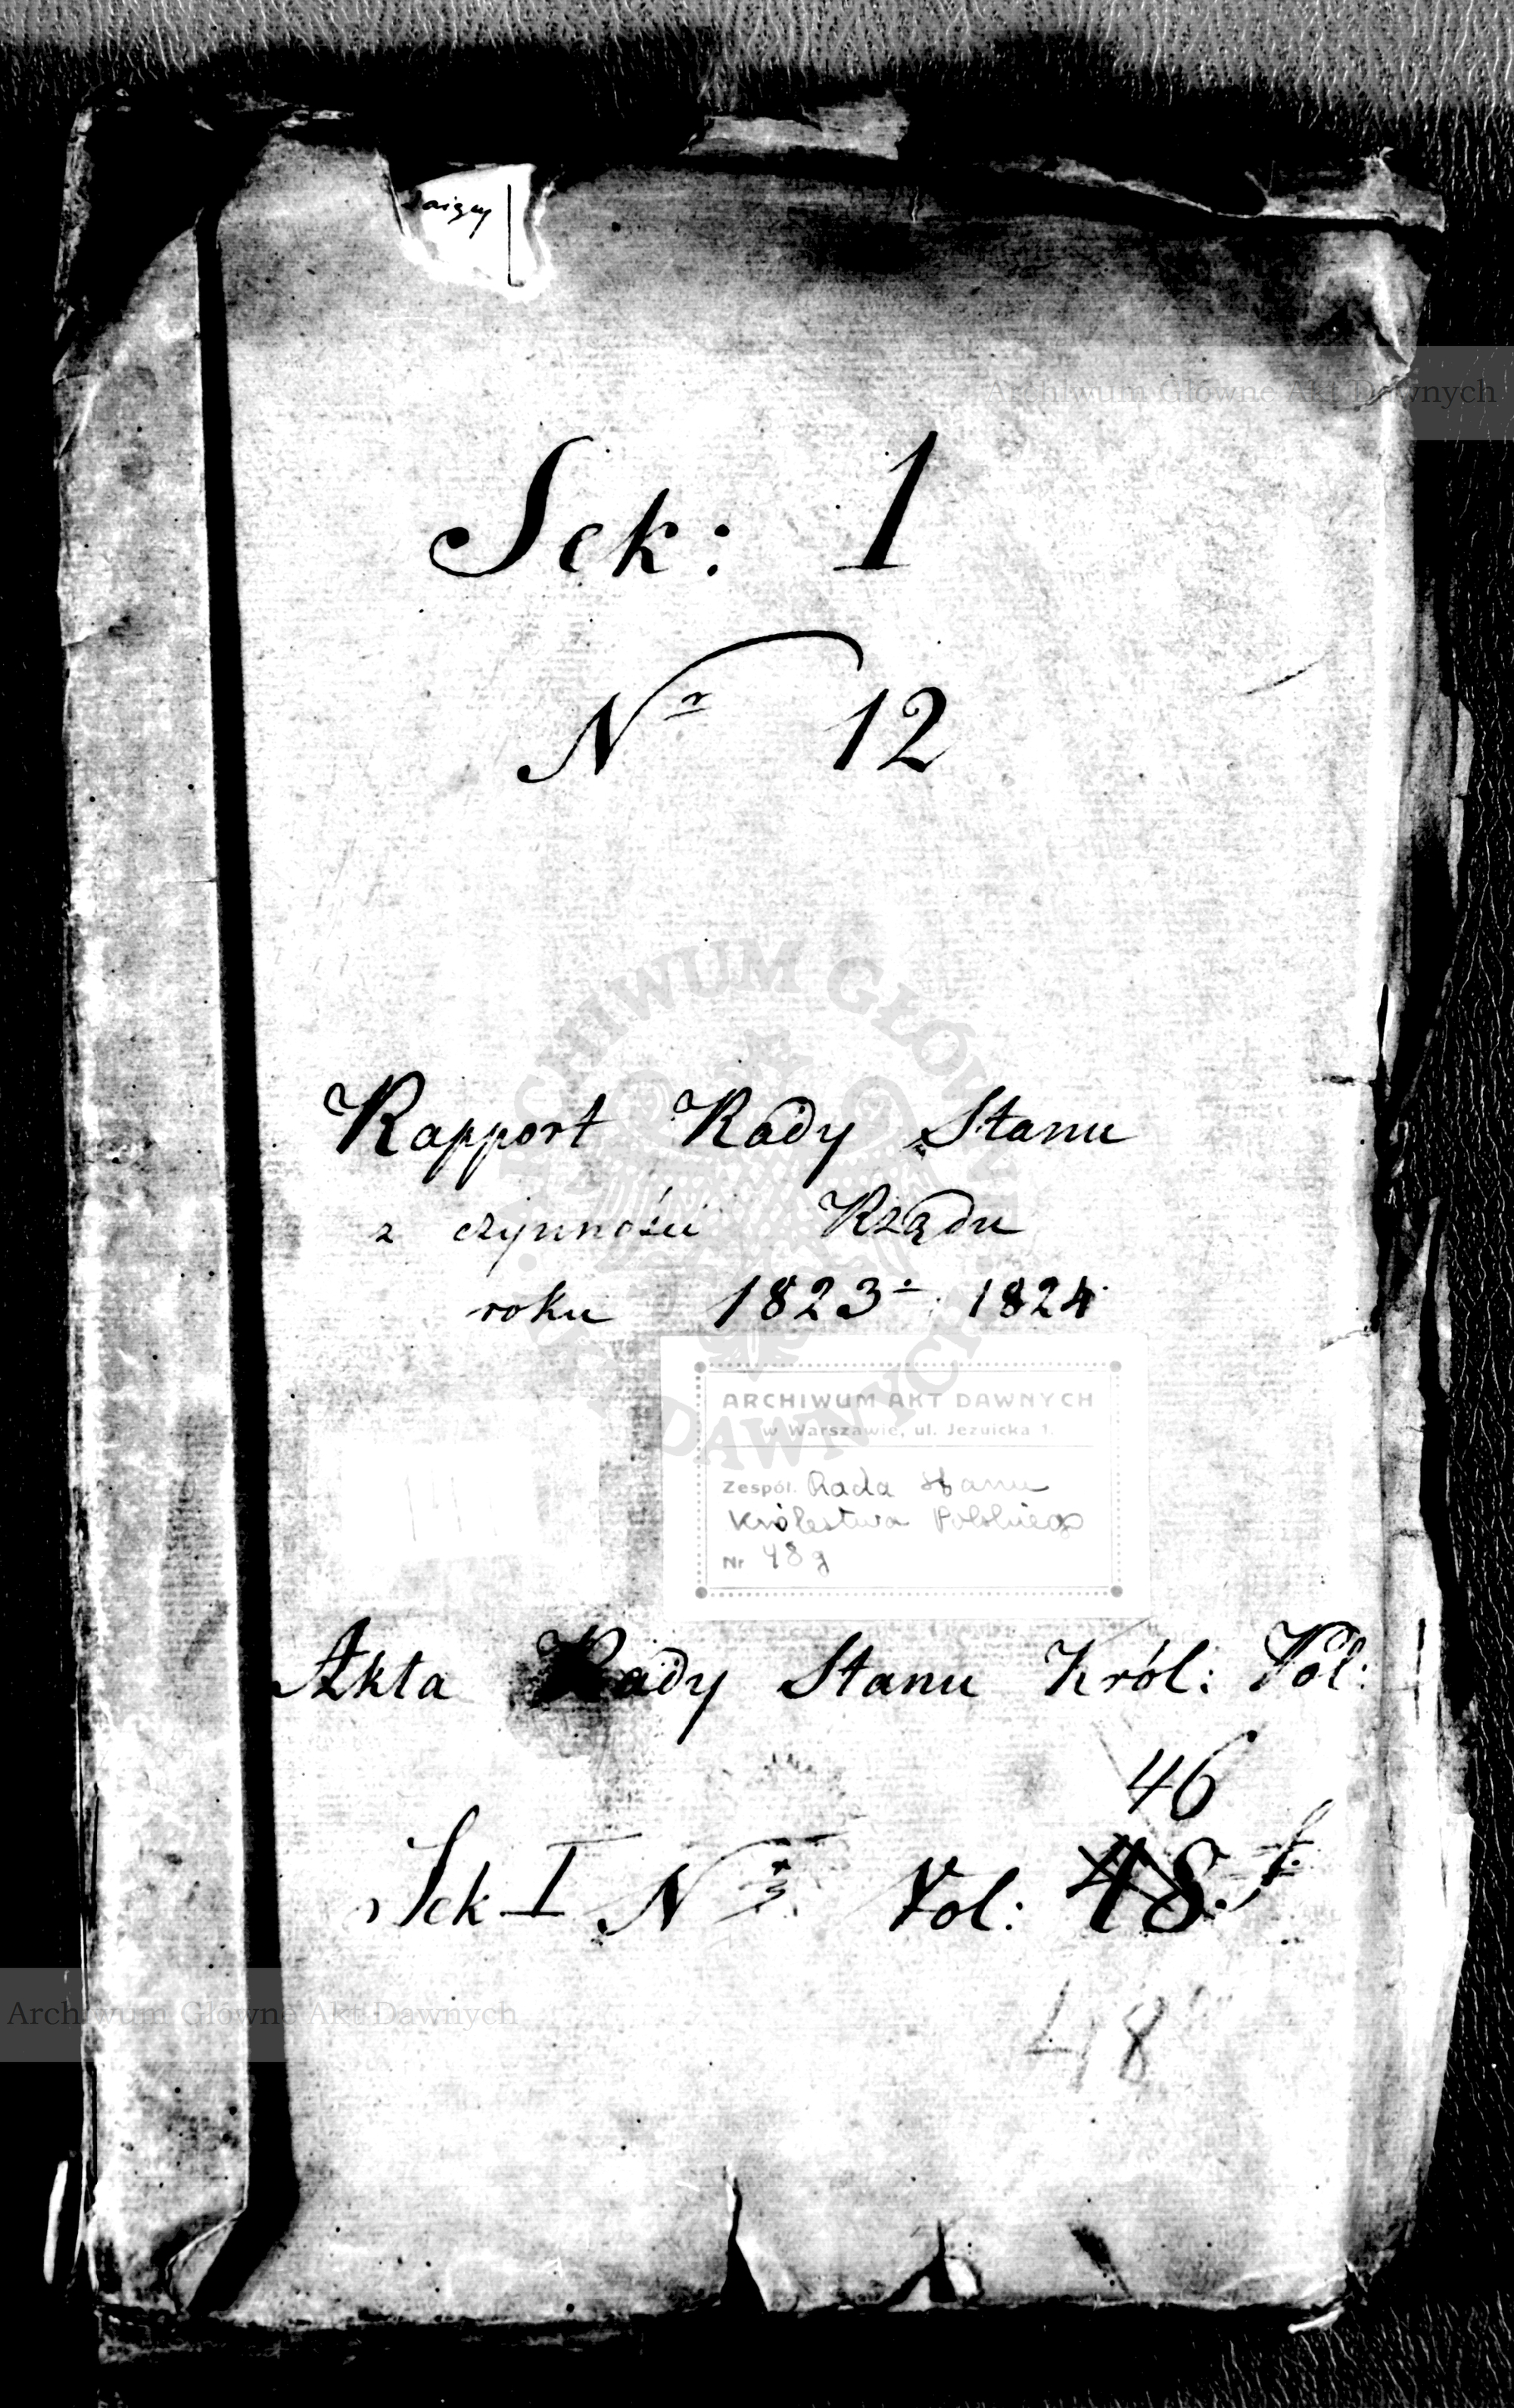 Archiwum Główne Akt Dawnych
Sek: 1
Nr 12
ARCHIWUM GŁÓWNE AKT DAWNYCH
Rapport Rady Stanu
z czynności Rządu
roku 1823 1824
ARCHIWUM AKT DAWNYCH
w Warszawie, ul. Jezuicka 1.
Zespół. Rada Stanu
Królestwa Polskiego
Nr 48g
Akta Rady Stanu Król: Pol:
46
Sek I Nr 3. Vol: 48. f.
48
Archiwum Główne Akt Dawnych